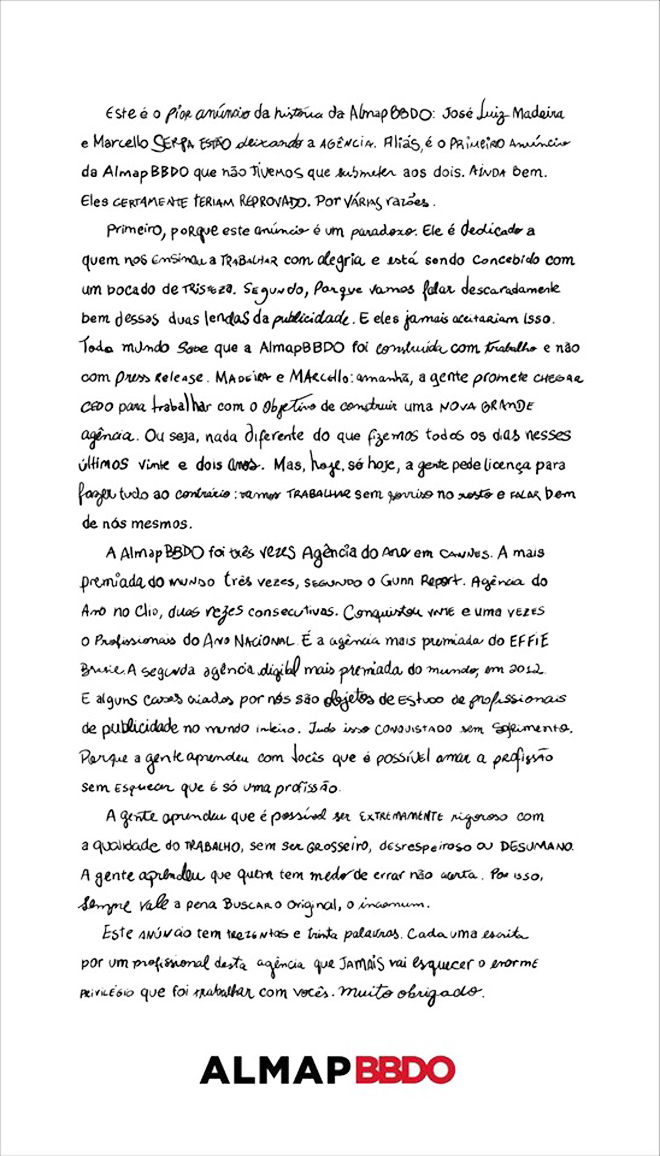 Este é o pior anúncio da história da AlmapBBDO: José Luiz Madeira
e Marcello SERPA ESTÃO deixando a AGÊNCIA. Aliás, é o PRIMEIRO Anúncio
da AlmapBBDO que não TIVEMOS que submeter aos dois. AINDA bem.
Eles CERTAMENTE TERIAM REPROVADO. Por VÁRIAS razões.
Primeiro, porque este anúncio é um paradoxo. Ele é dedicado a
quem nos ENSINOU a TRABALHAR com alegria e está sendo concebido com
um bocado de TRISTEZA. SEGUNDO, Porque vamos falar descaradamente
bem dessas duas lendas da publicidade. E eles jamais aceitariam isso.
Todo mundo sabe que a AlmapBBDO foi construída com trabalho e não
com press release. MADEIRA e MARCello: amanhã, a gente promete CHEGAR
CEDO para trabalhar com o objetivo de construir uma NOVA GRANDE
agência. Ou seja, nada diferente do que fizemos todos os dias nesses
últimos vinte e dois anos. Mas, hoje, só hoje, a gente pede licença para
fazer tudo ao contrário: vamos TRABALHAR sem sorriso no rosto e FALAR bem
de nós mesmos.
A AlmapBBDO foi três vezes Agência do Ano em CANNES. A mais
premiada do MUNDO três vezes, SEGUNDO o Gunn Report. Agência do
Ano no Clio, duas vezes consecutivas. Conquistou VINTE e uma VEZES
o Profissionais do Ano NACIONAL. É a agência mais premiada do EFFIE
Brasil. A segunda agência digital mais premiada do mundo, em 2012.
E alguns cases criados por nós são objetos de ESTUDO de profissionais
de publicidade no mundo inteiro. Tudo isso CONQUISTADO sem sofrimento.
Porque a gente aprendeu com vocês que é possível amar a profissão
sem esquecer que é só uma profissão.
A gente aprendeu que é possível ser EXTREMAMENTE rigoroso com
a qualidade do TRABALHO, sem ser GROSSEIRO, desrespeiroso OU DESUMANO.
A gente aprendeu que quem tem medo de errar não acerta. Por isso,
sempre vale a pena BUSCAR O original, o incomum.
Este ANÚNCIO tem TREZENTAS e trinta palavras. Cada uma escrita
por um profissional desta agência que JAMAIS vai esquecer o enorme
PRIVILÉGIO que foi trabalhar com vocês. Muito obrigado.
ALMAPBBDO